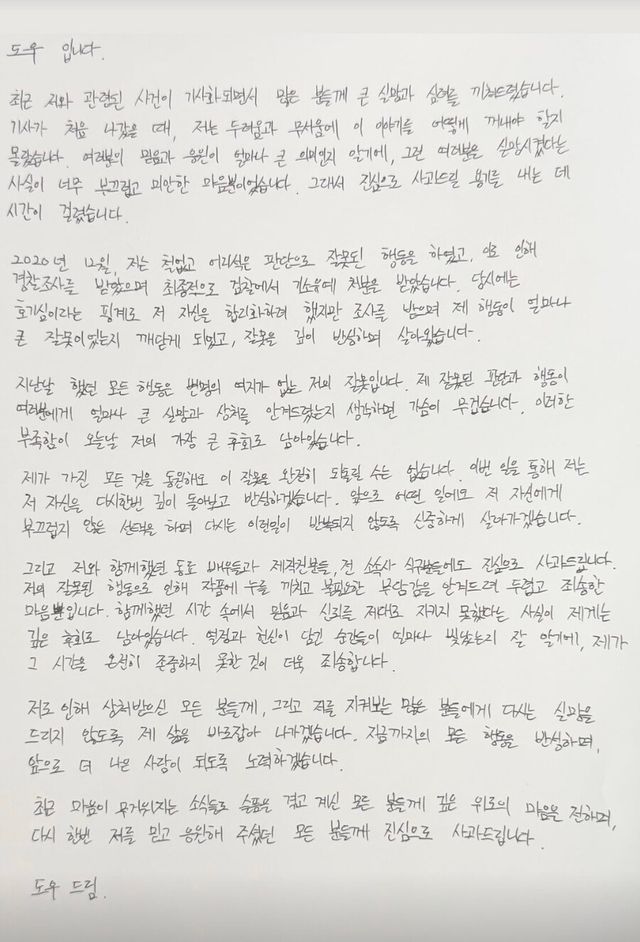 도우 입니다.
최근 저와 관련된 사건이 기사화되면서 많은 분들께 큰 실망과 심려를 끼쳐드렸습니다.
기사가 처음 나갔을 때, 저는 두려움과 무서움에 이 이야기를 어떻게 꺼내야 할지
몰랐습니다. 여러분의 믿음과 응원이 얼마나 큰 의미인지 알기에, 그런 여러분을 실망시켰다는
사실이 너무 부끄럽고 미안한 마음뿐이었습니다. 그래서 진심으로 사과드릴 용기를 내는 데
시간이 걸렸습니다.
2020년 12월, 저는 철없고 어리석은 판단으로 잘못된 행동을 하였고, 이로 인해
경찰조사를 받았으며 최종적으로 검찰에서 기소유예 처분을 받았습니다. 당시에는
호기심이라는 핑계로 저 자신을 합리화하려 했지만 조사를 받으며 제 행동이 얼마나
큰 잘못이었는지 깨닫게 되었고, 잘못을 깊이 반성하며 살아왔습니다.
지난날 했던 모든 행동은 변명의 여지가 없는 저의 잘못입니다. 제 잘못된 판단과 행동이
여러분에게 얼마나 큰 실망과 상처를 안겨드렸는지 생각하면 가슴이 무겁습니다. 이러한
부족함이 오늘날 저의 가장 큰 후회로 남아있습니다.
제가 가진 모든 것을 동원해도 이 잘못을 완전히 되돌릴 수는 없습니다. 이번 일을 통해 저는
저 자신을 다시한번 깊이 돌아보고 반성하겠습니다. 앞으로 어떤 일에도 저 자신에게
부끄럽지 않은 선택을 하며 다시는 이런일이 반복되지 않도록 신중하게 살아가겠습니다.
그리고 저와 함께했던 동료 배우들과 제작진분들, 전 소속사 식구분들에도 진심으로 사과드립니다.
저의 잘못된 행동으로 인해 작품에 누를 끼치고 불필요한 부담감을 안겨드려 무렵고 죄송한
마음뿐입니다. 함께했던 시간 속에서 믿음과 신뢰를 제대로 지키지 못했다는 사실이 제게는
깊은 후회로 남아있습니다. 열정과 헌신이 담긴 순간들이 얼마나 빛났는지 잘 알기에, 제가
그 시간을 온전히 존중하지 못한 것이 더욱 죄송합니다.
저로 인해 상처받으신 모든 분들께, 그리고 저를 지켜보는 많은 분들에게 다시는 실망을
드리지 않도록 제 삶을 바로잡아 나가겠습니다. 지금까지의 모든 행동을 반성하며,
앞으로 더 나은 사람이 되도록 노력하겠습니다.
최근 마음이 무거워지는 소식들로 슬픔을 겪고 계신 모든 분들께 깊은 위로의 마음을 전하며,
다시 한번 저를 믿고 응원해 주셨던 모든 분들께 진심으로 사과드립니다.
도우 드림.